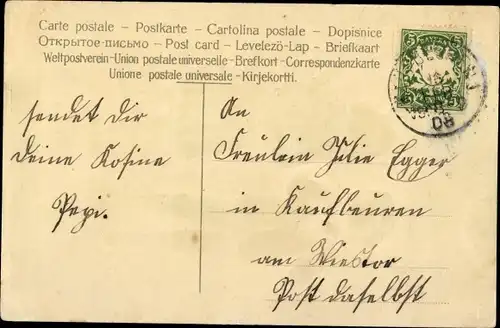 Carte postale – Postkarte – Cartolina postale – Dopisnice
Открытое-письмо – Post card – Levelező-Lap – Briefkaart
Weltpostverein-Union postale universelle-Brefkort-Correspondenzkarte
Unione postale universale-Kirjekortti.
5 5
08
sendet dir
deine Kosine
Pepi.
An
Freulein Julie Egger
in Kaufbeuren
am Wiestor
Post daselbst